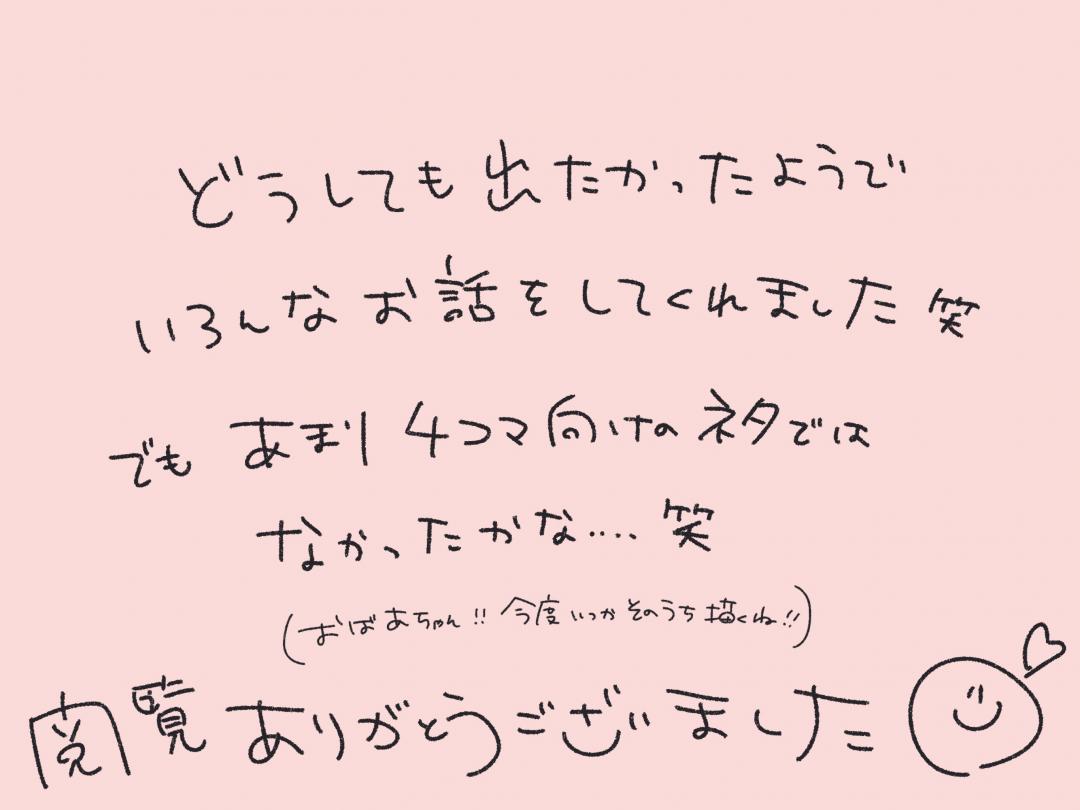 どうしても出たかったようで
いろんなお話をしてくれました笑
でもあまり4コマ向けのネタでは
なかったかな‥‥笑
(おばあちゃん!!今度いつかそのうち描くね!!)
閲覧ありがとうございました